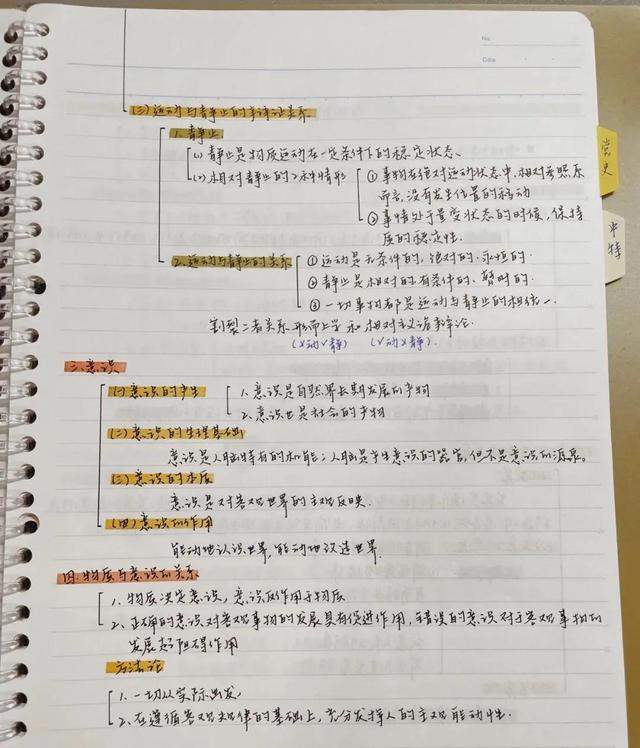 No.
Date
(三)运动与静止的辩证关系
1.静止
(1)静止是物质运动在一定条件下的稳定状态、
(2)相对静止的2种情形
①事物在绝对运动状态中,相对参照系
而言,没有发生位置的移动
②事情处于量变状态的时候,保持
质的稳定性.
2.运动与静止的关系
①运动是无条件的,绝对的.永恒的.
②静止是相对的.有条件的,暂时的.
③一切事物都是运动与静止的相统一.
割裂二者关系.形而上学 和 相对主义诡辩论.
(×动√静) (√动×静).
党史
中特
三.意识
(一)意识的产生
1.意识是自然界长期发展的产物
2.意识也是社会的产物
(二)意识的生理基础
意识是人脑特有的机能;人脑是产生意识的器官,但不是意识的源泉。
(三)意识的本质
意识是对客观世界的主观反映.
(四)意识的作用
能动地认识世界,能动地改造世界.
四.物质与意识的关系
1.物质决定意识,意识反作用于物质
2.正确的意识对客观事物的发展具有促进作用,错误的意识对于客观事物的
发展起阻碍作用
方法论
1.一切从实际出发,
2.在遵循客观规律的基础上,充分发挥人的主观能动性.